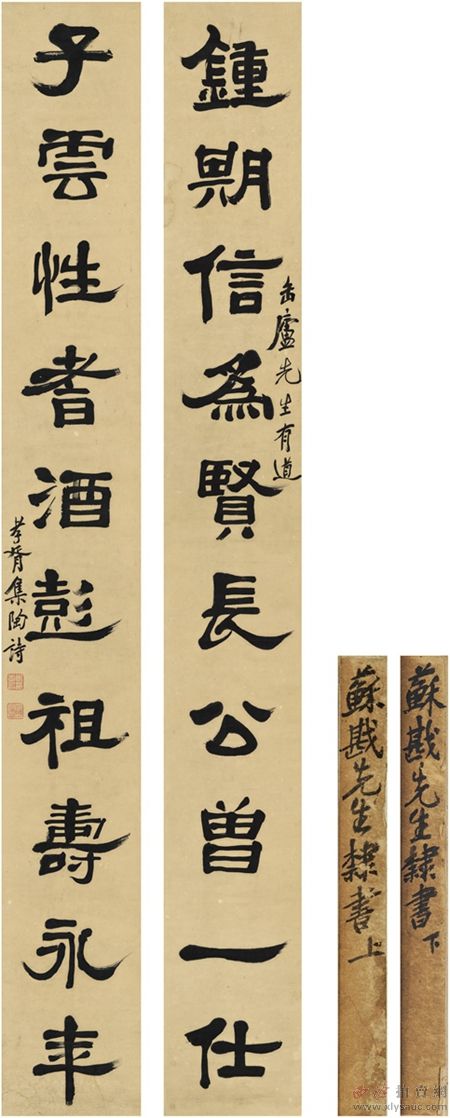 鍾期信為賢長公曾一仕
缶廬先生有道
子雲性耆酒彭祖壽永年
孝胥集陶詩
蘇戡先生隸書下
蘇戡先生隸書上
西泠拍賣網
www.xlysauc.com